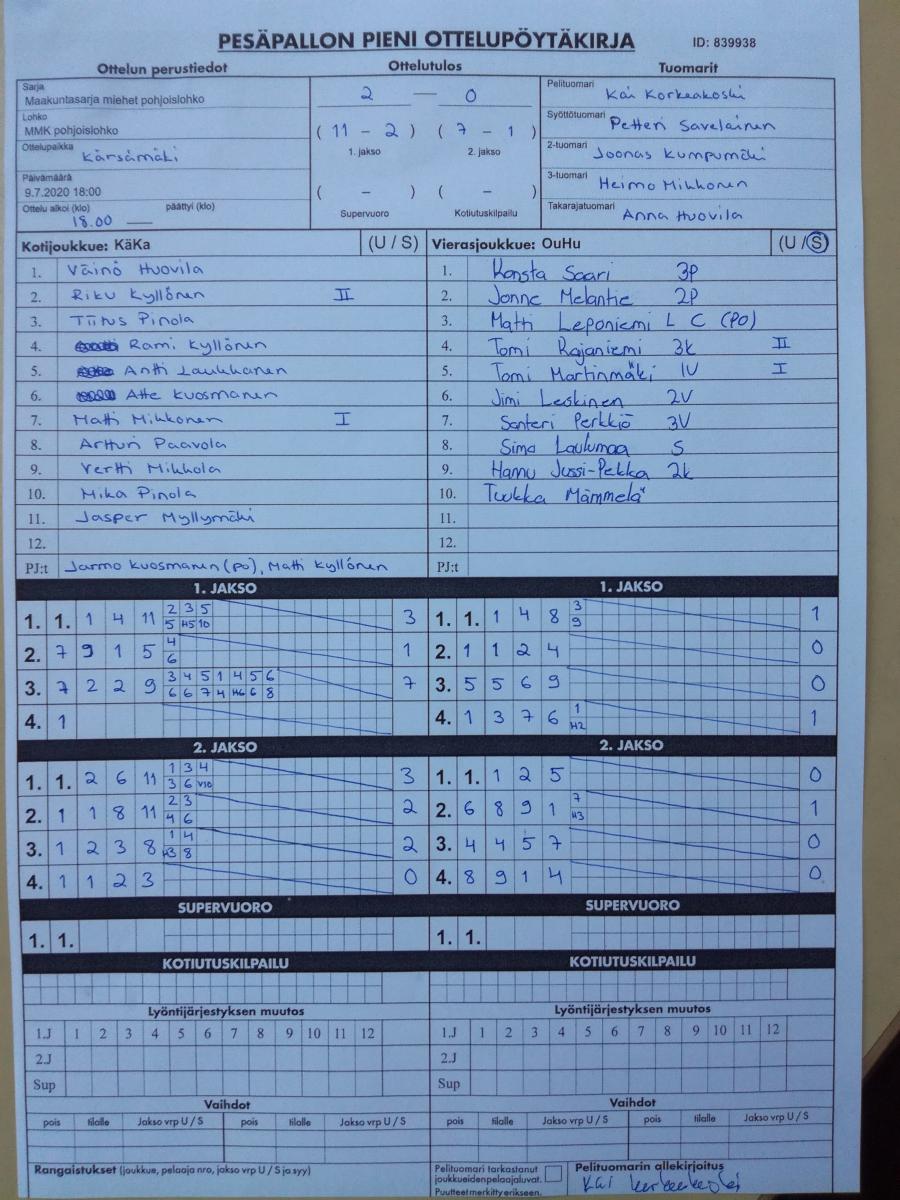 PESÄPALLON PIENI OTTELUPÖYTÄKIRJA ID: 839938
Ottelun perustiedot Ottelutulos Tuomarit
Sarja
Maakuntasarja miehet pohjoislohko
Lohko
MMK pohjoislohko
Ottelupaikka Kärsämäki
Päivämäärä
9.7.2020 18:00
Ottelu alkoi (klo) päättyi (klo)
18.00 —
2 — 0
( 11 - 2 ) ( 7 - 1 )
1. jakso 2. jakso
( - ) ( - )
Supervuoro Kotiutuskilpailu
Pelituomari Kai Korkeakoski
Syöttötuomari Petteri Savelainen
2-tuomari Joonas Kumpumäki
3-tuomari Heimo Mikkonen
Takarajatuomari Anna Huovila
Kotijoukkue: KäKa (U / S)
1. Väinö Huovila
2. Riku Kyllönen II
3. Tiitus Pinola
4. Rami Kyllönen
5. Antti Laukkanen
6. Atte Kuosmanen
7. Matti Mikkonen I
8. Artturi Paavola
9. Vertti Mikkola
10. Mika Pinola
11. Jasper Myllymäki
12.
PJ:t Jarmo Kuosmanen (PO), Matti Kyllönen
Vierasjoukkue: OuHu (U / S)
1. Konsta Saari 3P
2. Jonne Melantie 2P
3. Matti Leponiemi L C (PO)
4. Tomi Rajaniemi 3K II
5. Tomi Martinmäki 1V I
6. Jimi Leskinen 2V
7. Santeri Perkkiö 3V
8. Simo Laulumaa S
9. Hamu Jussi-Pekka 2K
10. Tuukka Mämmelä
11.
12.
PJ:t
1. JAKSO
1. 1. 1 4 11 2 3 5 3
5 H5 10
2. 7 9 1 5 4 1
6
3. 7 2 2 9 3 4 5 1 4 5 6 7
6 6 7 4 H6 6 8
4. 1
2. JAKSO
1. 1. 2 6 11 1 3 4 3
3 6 V10
2. 1 1 8 11 2 3 2
4 6
3. 1 2 3 8 1 4 2
H3 8
4. 1 1 2 3 0
SUPERVUORO
1. 1.
KOTIUTUSKILPAILU
Lyöntijärjestyksen muutos
1.J 1 2 3 4 5 6 7 8 9 10 11 12
2.J
Sup
Vaihdot
pois tilalle Jakso vrp U / S pois tilalle Jakso vrp U / S
1. JAKSO
1. 1. 1 4 8 3 1
9
2. 1 1 2 4 0
3. 5 5 6 9 0
4. 1 3 7 6 1 1
H2
2. JAKSO
1. 1. 1 2 5 0
2. 6 8 9 1 7 1
H3
3. 4 4 5 7 0
4. 8 9 1 4 0
SUPERVUORO
1. 1.
KOTIUTUSKILPAILU
Lyöntijärjestyksen muutos
1.J 1 2 3 4 5 6 7 8 9 10 11 12
2.J
Sup
Vaihdot
pois tilalle Jakso vrp U / S pois tilalle Jakso vrp U / S
Rangaistukset (joukkue, pelaaja nro, jakso vrp U / S ja syy)
Pelituomari tarkastanut
joukkueidenpelaajaluvat.
Puutteet merkitty erikseen.
Pelituomarin allekirjoitus
Kai Korkeakoski